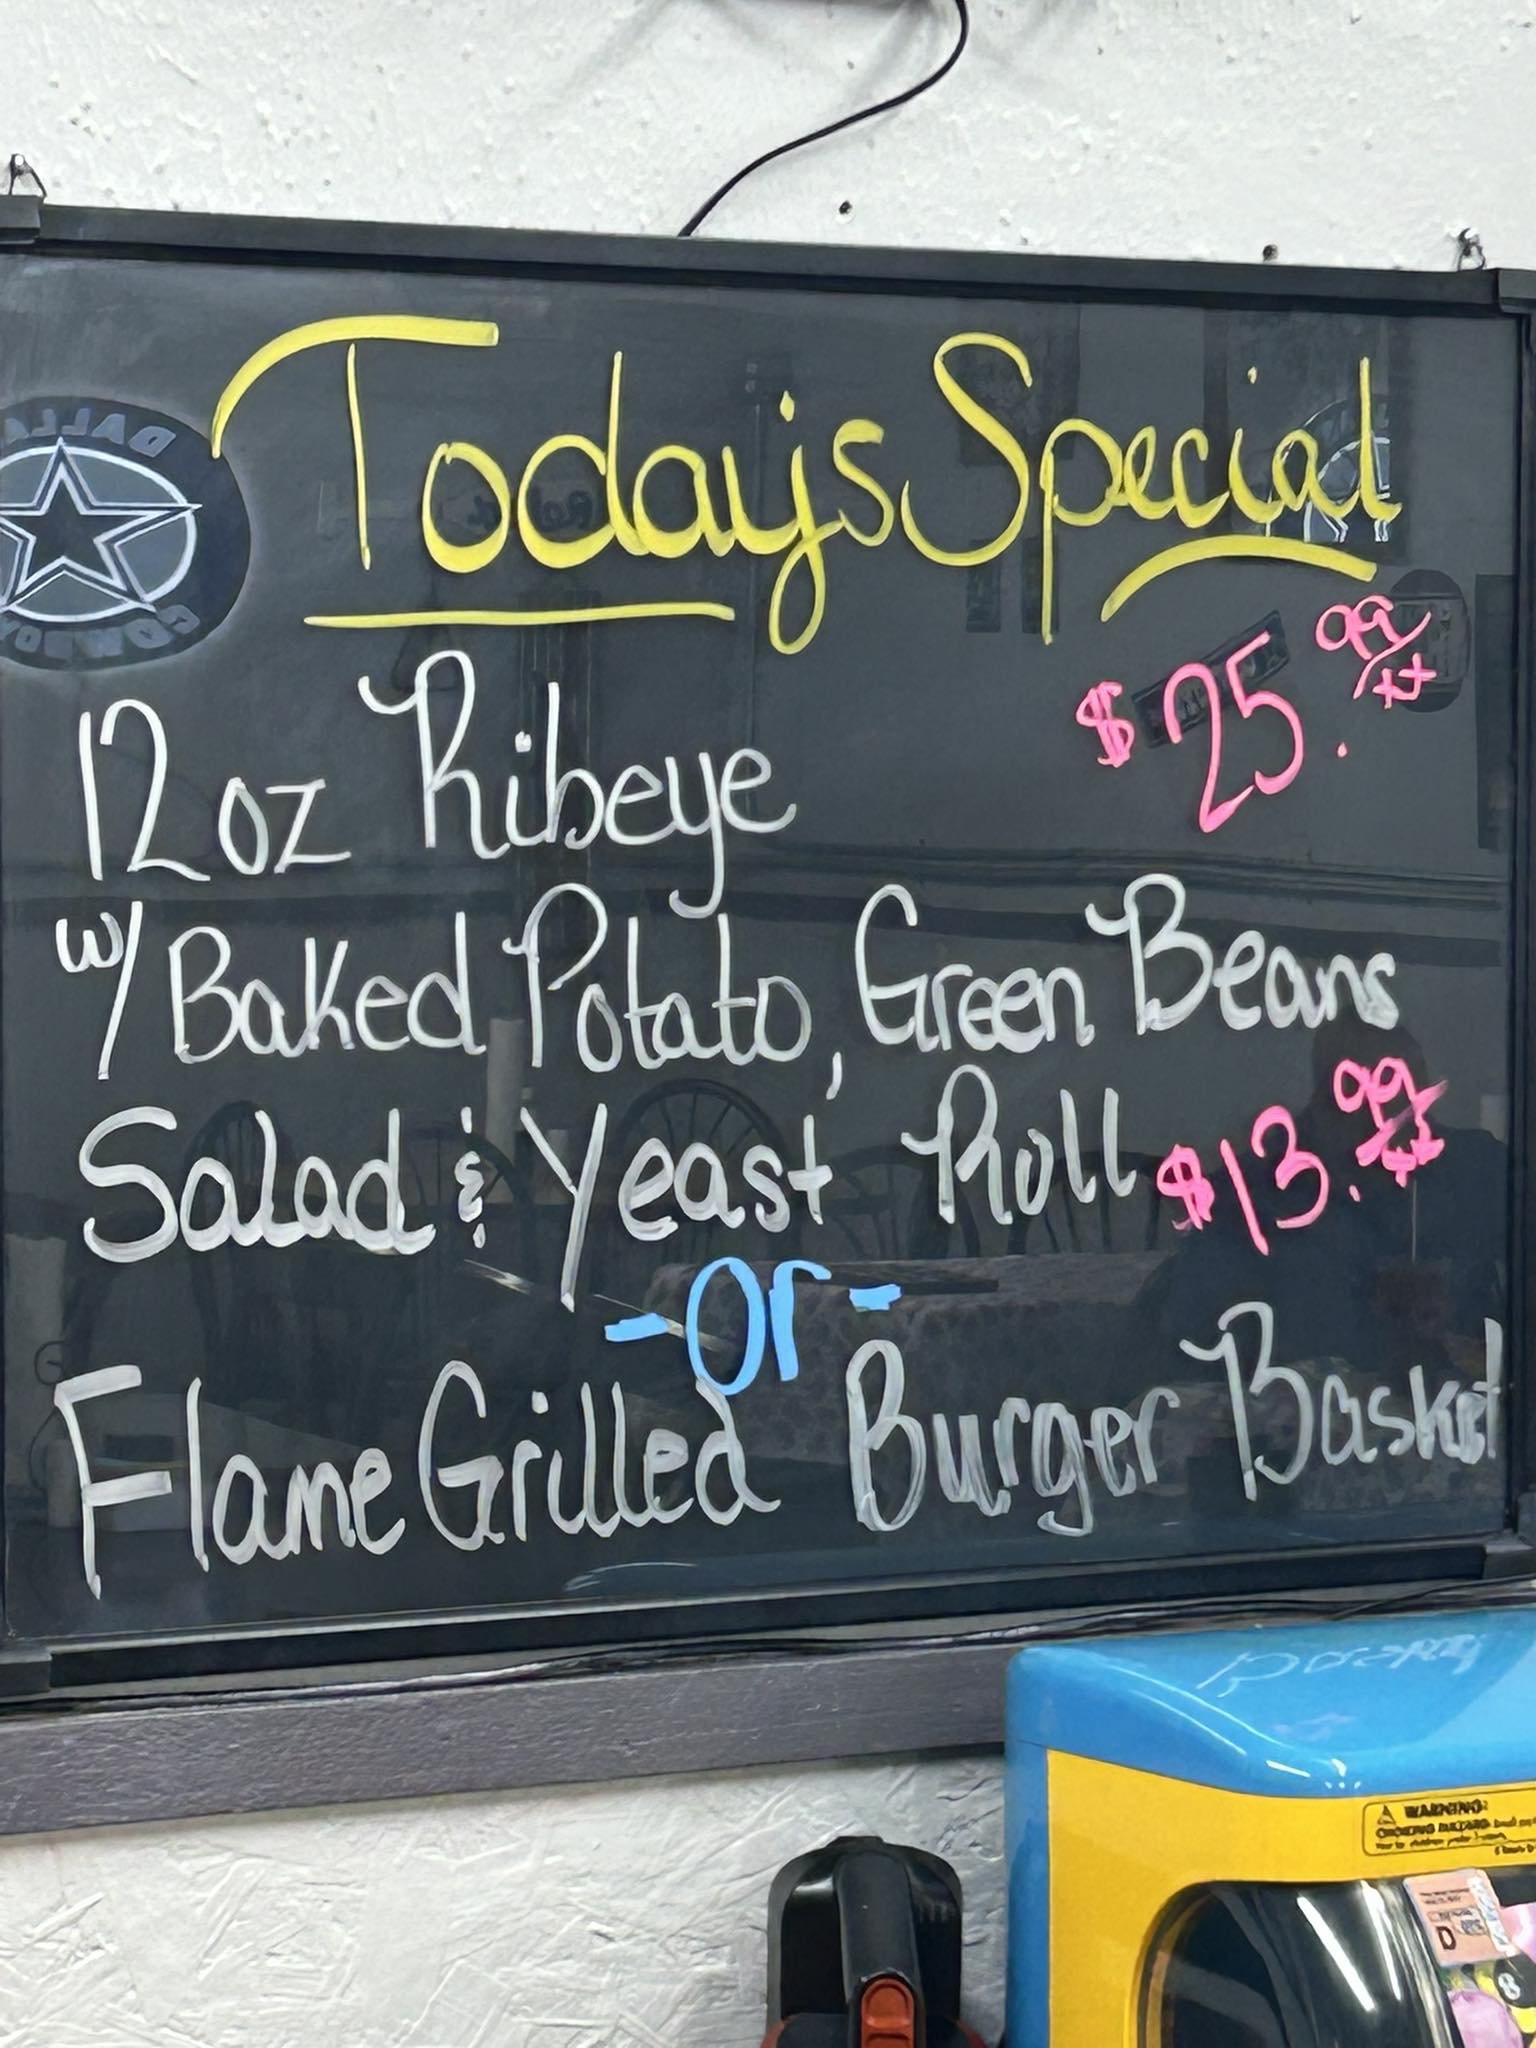 Today's Special
12 oz Ribeye $25.99/++
w/ Baked Potato, Green Beans
Salad & Yeast Roll $13.99/++
-Or-
Flame Grilled Burger Basket
WARNING:
CHOKING HAZARD
D
8